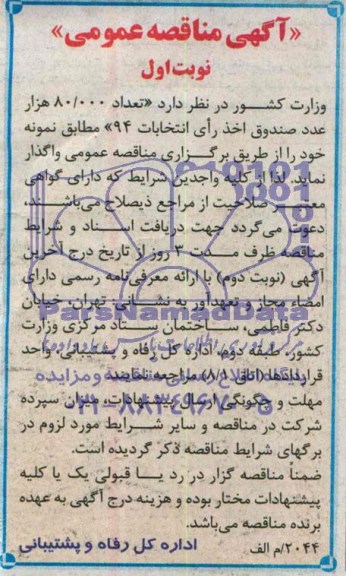 «آگهی مناقصه عمومی»
نوبت اول
وزارت کشور در نظر دارد «تعداد ۸۰/۰۰۰ هزار
عدد صندوق اخذ رأی انتخابات ۹۴» مطابق نمونه
خود را از طریق برگزاری مناقصه عمومی واگذار
نماید. لذا از کلیه واجدین شرایط که دارای گواهی
معتبر صلاحیت از مراجع ذیصلاح می‌باشند،
دعوت می‌گردد جهت دریافت اسناد و شرایط
مناقصه ظرف مدت ۳ روز از تاریخ درج آخرین
آگهی (نوبت دوم) با ارائه معرفی‌نامه رسمی دارای
امضاء مجاز و تعهدآور به نشانی: تهران، خیابان
ParsNamadData
دکتر فاطمی، ساختمان ستاد مرکزی وزارت
کشور، طبقه دوم، اداره کل رفاه و پشتیبانی، واحد
قراردادها (اتاق ۸/۱) مراجعه نمایند.
۰۲۱-۸۸۳۴۹۶۷۰-۵
مهلت و چگونگی ارسال پیشنهادات، میزان سپرده
شرکت در مناقصه و سایر شرایط مورد لزوم در
برگهای شرایط مناقصه ذکر گردیده است.
ضمناً مناقصه گزار در رد یا قبولی یک یا کلیه
پیشنهادات مختار بوده و هزینه درج آگهی به عهده
برنده مناقصه می‌باشد.
۲۰۴۴/م الف
اداره کل رفاه و پشتیبانی